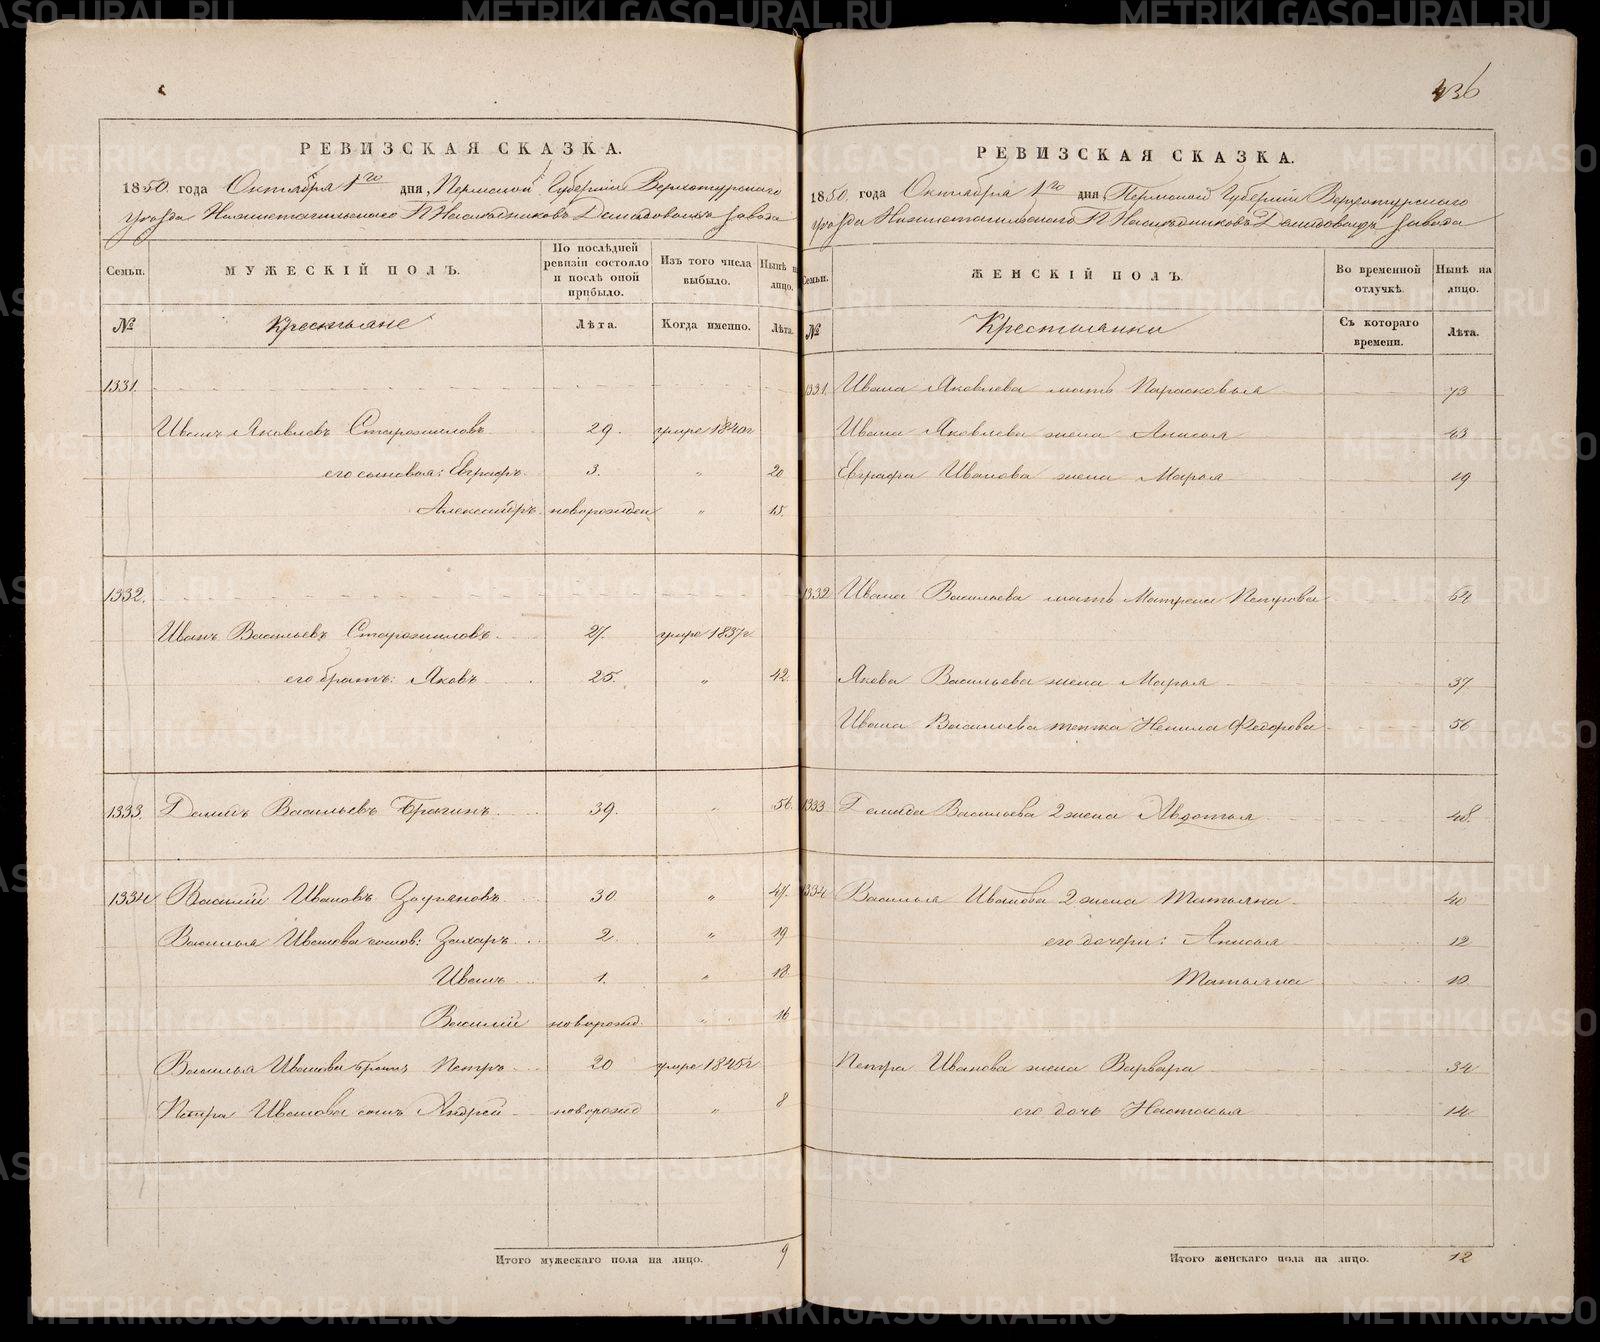 436
РЕВИЗСКАЯ СКАЗКА.
1850 года Октября 1го дня, Пермской Губернии Верхотурского
уезда Нижнетагильского Гг Наследниковъ Демидовыхъ завода
Семьи. МУЖЕСКІЙ ПОЛЪ. По послѣдней ревизіи состояло и послѣ оной прибыло. Изъ того числа выбыло. Нынѣ на лицо.
№ Крестьяне Лѣта. Когда именно. Лѣта.
1331.
Иванъ Яковлевъ Старожиловъ 29. умре 1840г
его сыновья: Евграфъ 3. " 20
Александръ новорожден " 15.
1332.
Иванъ Васильевъ Старожиловъ 27. умре 1837г
его братъ: Яковъ 25. " 42
1333. Демидъ Васильевъ Брагинъ 39. " 56.
1334 Василій Ивановъ Зауряновъ 30 " 47.
Василья Иванова сынов: Захаръ 2. " 19
Иванъ 1. " 18.
Василій новорожд. " 16
Василья Иванова братъ Петръ 20 умре 1845г
Петра Иванова сынъ Андрей новорожд " 8
Итого мужескаго пола на лицо. 9
РЕВИЗСКАЯ СКАЗКА.
1850 года Октября 1го дня Пермской Губерніи Верхотурского
уезда Нижнетагильского Гг Наследниковъ Демидовыхъ завода
Семьи. ЖЕНСКІЙ ПОЛЪ. Во временной отлучкѣ. Нынѣ на лицо.
№ Крестьянки Съ котораго времени. Лѣта.
1331. Ивана Яковлева мать Парасковья 73
Ивана Яковлева жена Анисья 43
Евграфа Иванова жена Марья 19
1332 Ивана Васильева мать Матрена Петрова 64
Якова Васильева жена Марья 37
Ивана Васильева тетка Ненила Федорова 56
1333 Демида Васильева 2 жена Авдотья 48.
1334 Василья Иванова 2 жена Татьяна 40
его дочери: Анисья 12
Татьяна 10
Петра Иванова жена Варвара 34
его дочь Настасья 14
Итого женскаго пола на лицо. 12
METRIKI.GASO-URAL.RU